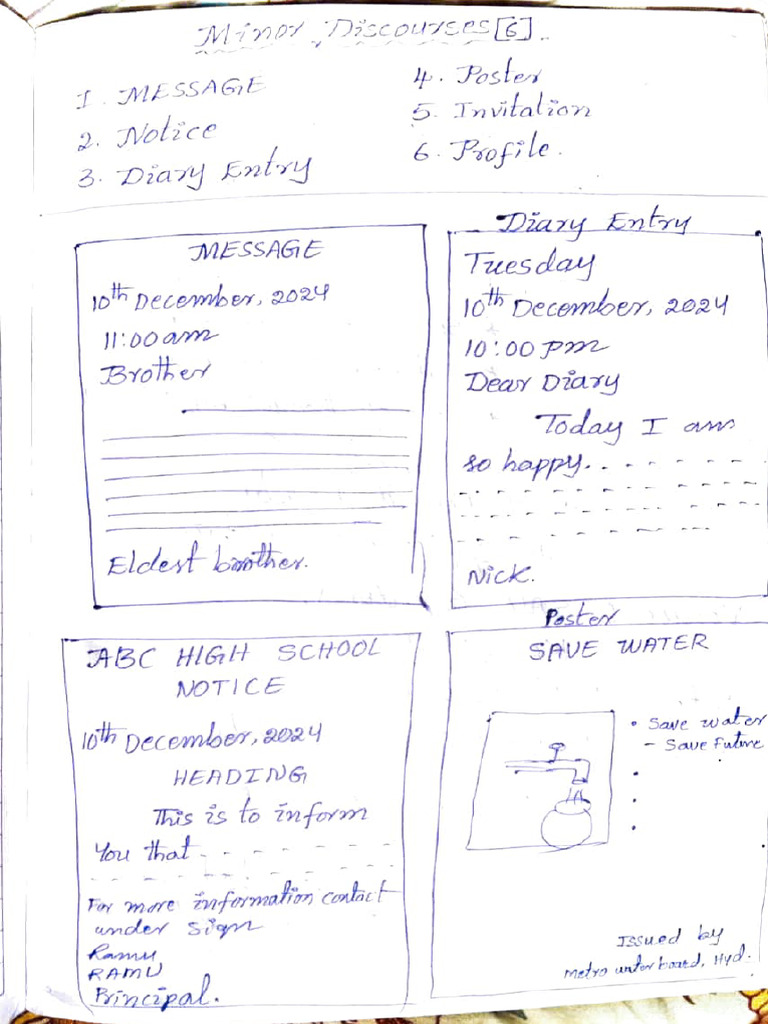 Minor Discourses [6]
1. MESSAGE
2. Notice
3. Diary Entry
4. Poster
5. Invitation
6. Profile.
MESSAGE
10th December, 2024
11:00 am
Brother
Eldest brother.
Diary Entry
Tuesday
10th December, 2024
10:00 pm
Dear Diary
Today I am
so happy.
Nick.
ABC HIGH SCHOOL
NOTICE
10th December, 2024
HEADING
This is to inform
You that
For more information contact
under sign
Ramu
RAMU
Principal.
Poster
SAVE WATER
• Save water
- Save Future
•
•
•
Issued by
Metro water board, Hyd.